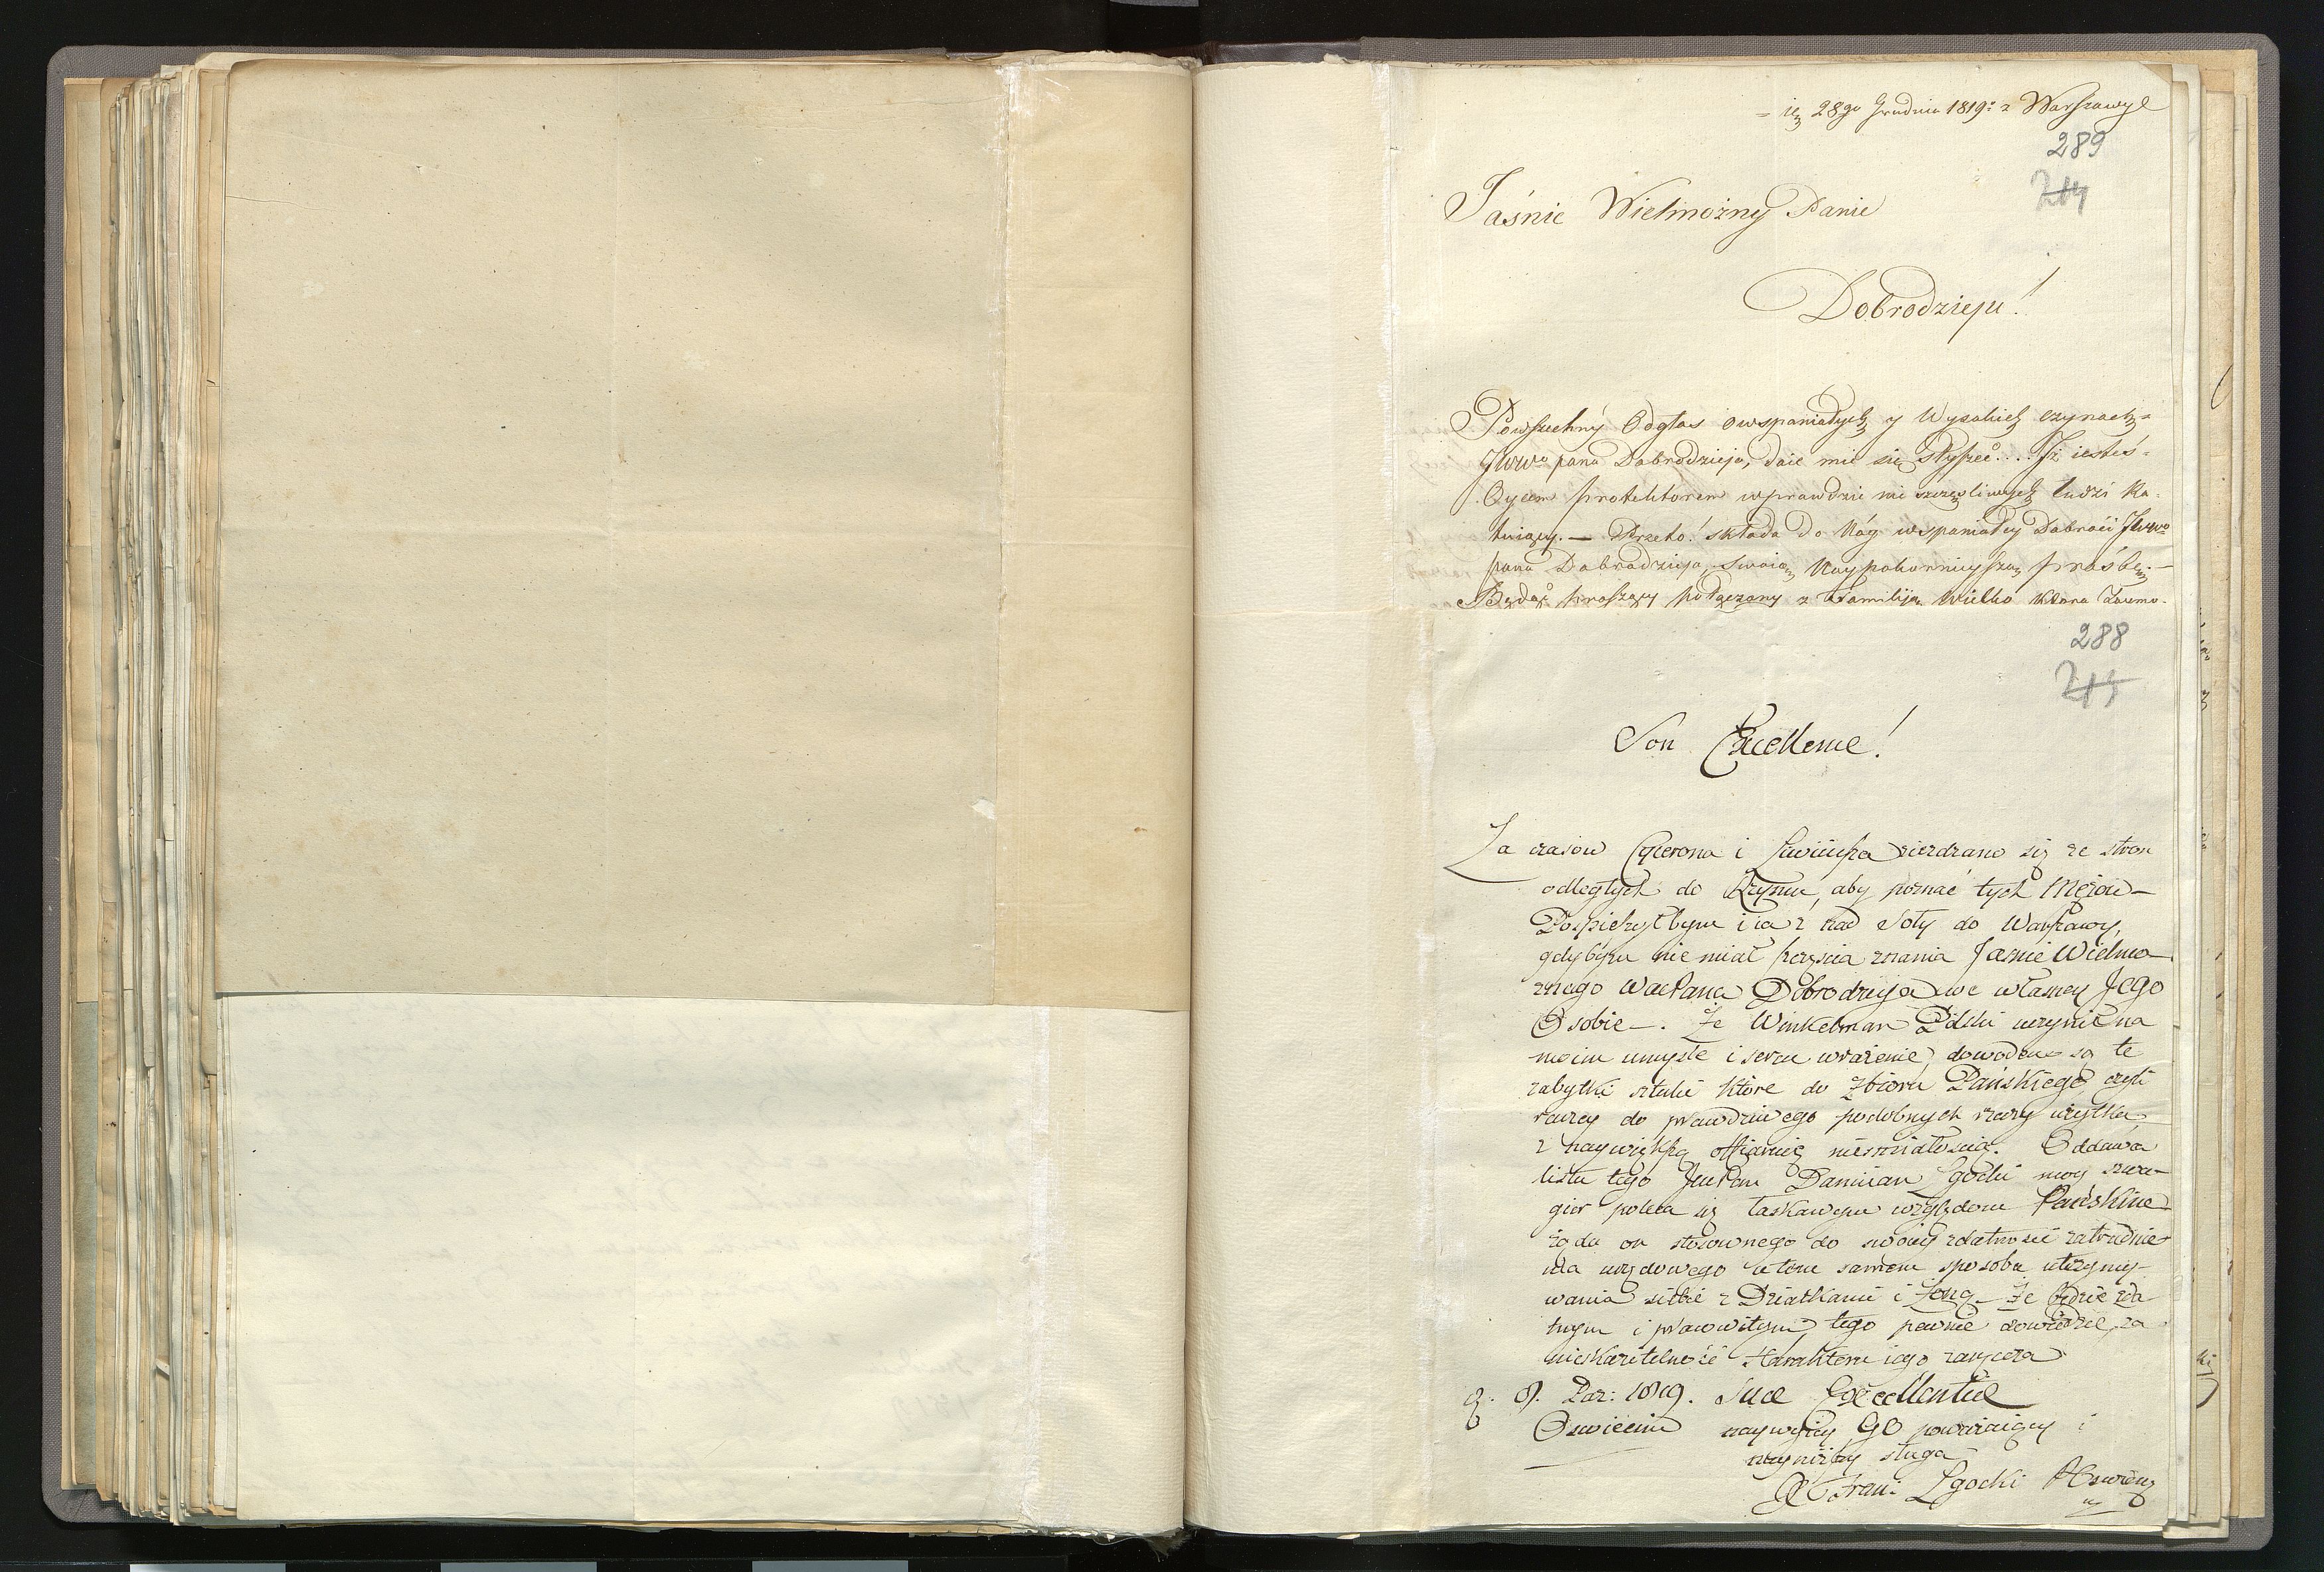 28go Grudnia 1819: z Warszawy
289
214
Jaśnie Wielmożny Panie
Dobrodzieju!
Powszechny Odgłos o wspaniałych y Wysokich czynach
JWWo pana Dobrodzieja, daie mie się Słyszeć.... Iż iesteś
Oycem protektorem wprawdzie nie szczęsliwych Ludzi
Przeto! składa do Nóg wspaniałey Dobroci JWWo
pana Dobrodzieja Swoią Naypokornieyszą prośbę.
Będąc proszący połączony z Familiją Wielko
288
215
Son Excellence!
Za czasow Cycerona i Liwiusza zieżdzano się ze stron
odległych do Rzymu, aby poznać tych Mężow
Pospieszyłbym i ia z nad Soły do Warszawy,
gdybym nie miał szczęscia znania Jasnie Wielmo-
żnego WacPana Dobrodzieja we własney Jego
Osobie. Że Winkelman Polski uczynił na
moim umysle i sercu wrażenie, dowodem są te
zabytki sztuki które do Zbioru Pańskiego czyli
raczey do prawdziwego podobnych rzeczy użytku
z naywiększą offiaruię nieśmiałoscią. Oddawca
listu tego JmcPan Damian Lgocki moy szwa-
gier poleca się łaskawym względom Pańskim
żąda on stosownego do swoiey zdatnosci zatrudnie-
nia urzędowego a tem samem sposobu utrzymy-
wania siebie z Dziatkami i Żoną. Że będzie zda-
tnym i prawowitym, tego pewnie dowiedzie, za
nieskazitelność Harakteru iego zaręcza
d. 9. Paz: 1819. Suae Excellentiae
Oswiecim naywyżey GO poważaiący i
nayniższy sługa
X Fran: Lgocki